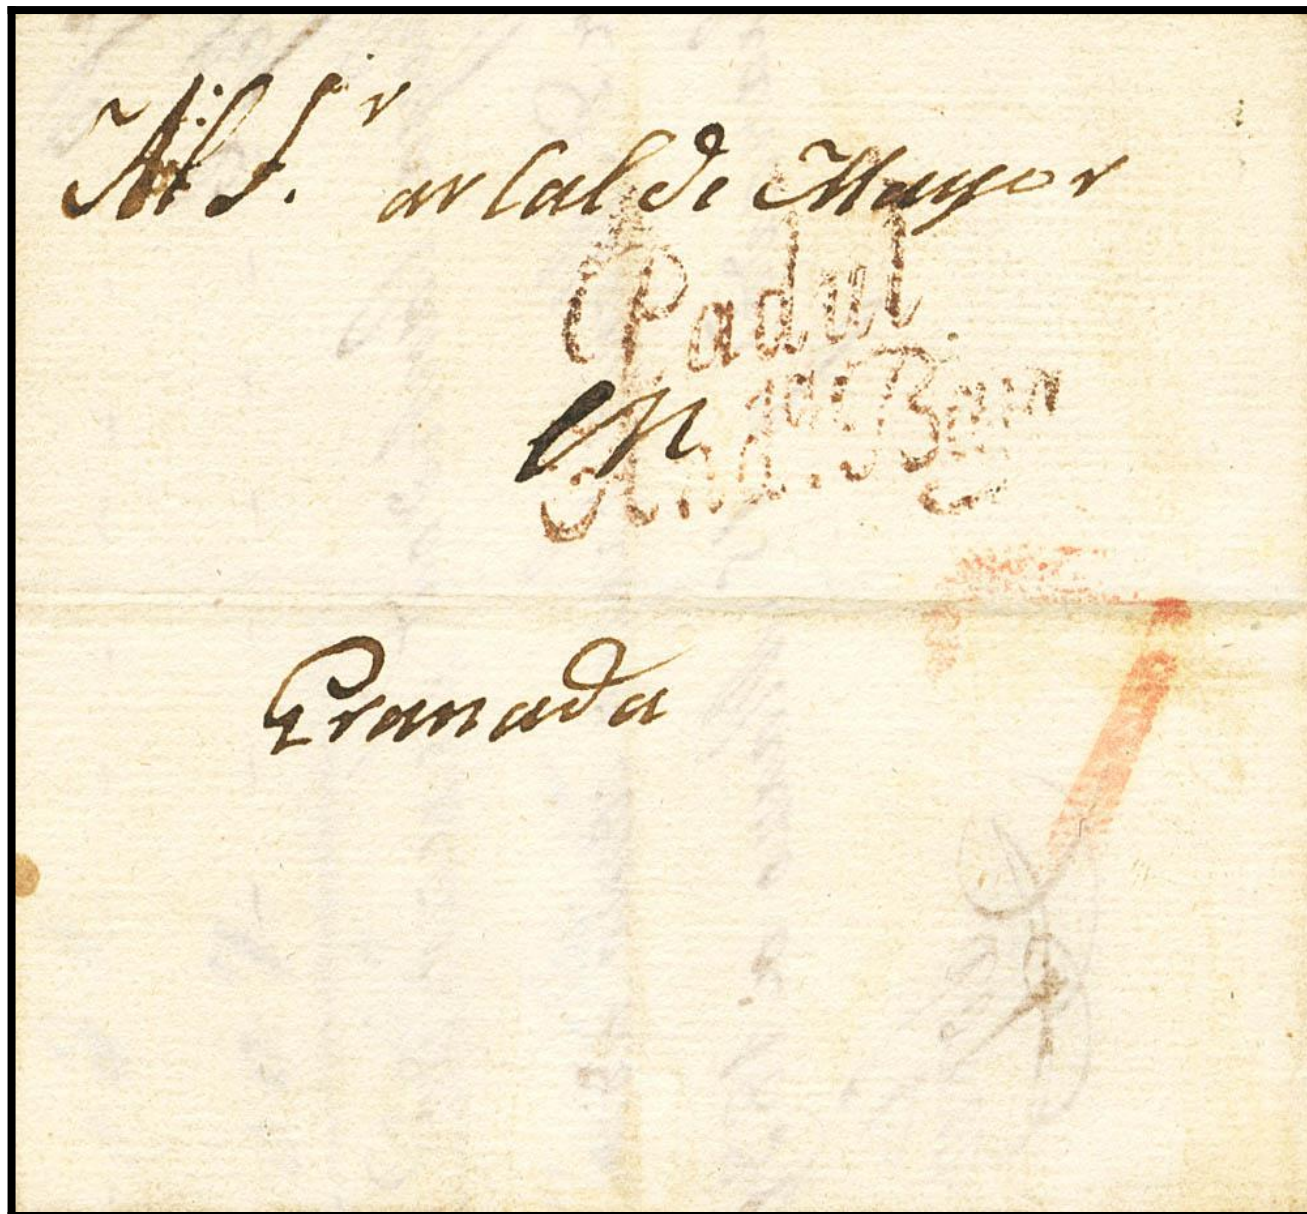 Al S.r arcalde Mayor
Padul
en
And.a Baxa
Granada
7